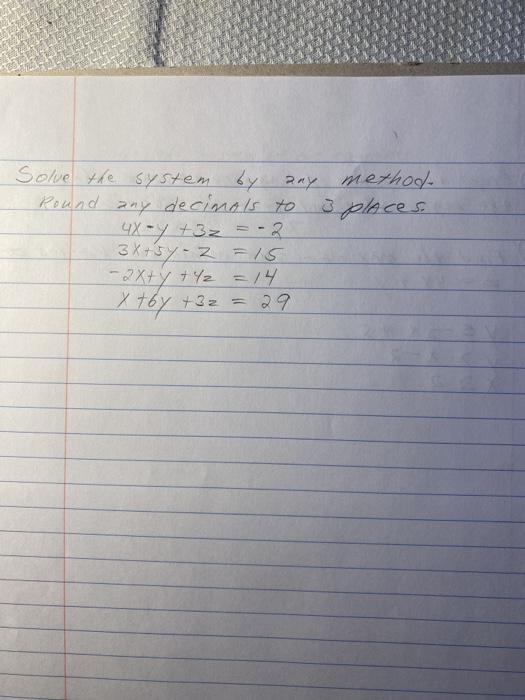 Solve the system by any method.
Round any decimals to 3 places.
4x-y+3z = -2
3x+5y-z = 15
-2x+y+4z = 14
x+6y+3z = 29